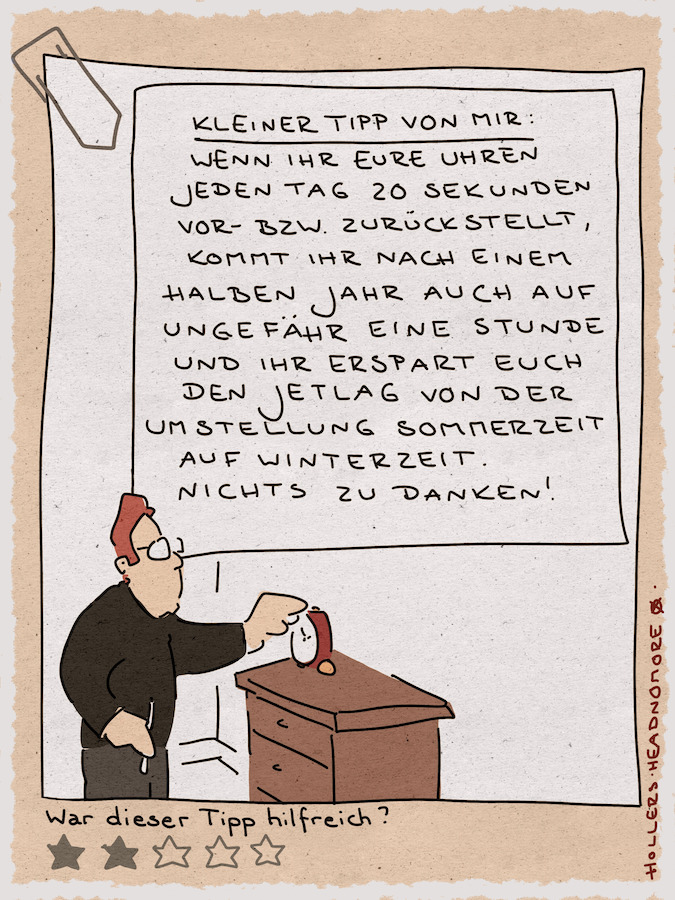 KLEINER TIPP VON MIR:
WENN IHR EURE UHREN
JEDEN TAG 20 SEKUNDEN
VOR- BZW. ZURÜCKSTELLT,
KOMMT IHR NACH EINEM
HALBEN JAHR AUCH AUF
UNGEFÄHR EINE STUNDE
UND IHR ERSPART EUCH
DEN JETLAG VON DER
UMSTELLUNG SOMMERZEIT
AUF WINTERZEIT.
NICHTS ZU DANKEN!
War dieser Tipp hilfreich?
HOLLERS·HEADNOMORE